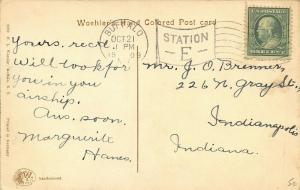 Woehler's Hand Colored Post card
BUFFALO
OCT 21
1 PM
STATION
E
Yours, recd
Will look for
you in you
airship.
Ans. soon.
Marguerite
Hanes.
Mr. J. O. Brenner,
226 N. Gray St.,
Indianapolis
Indiana.